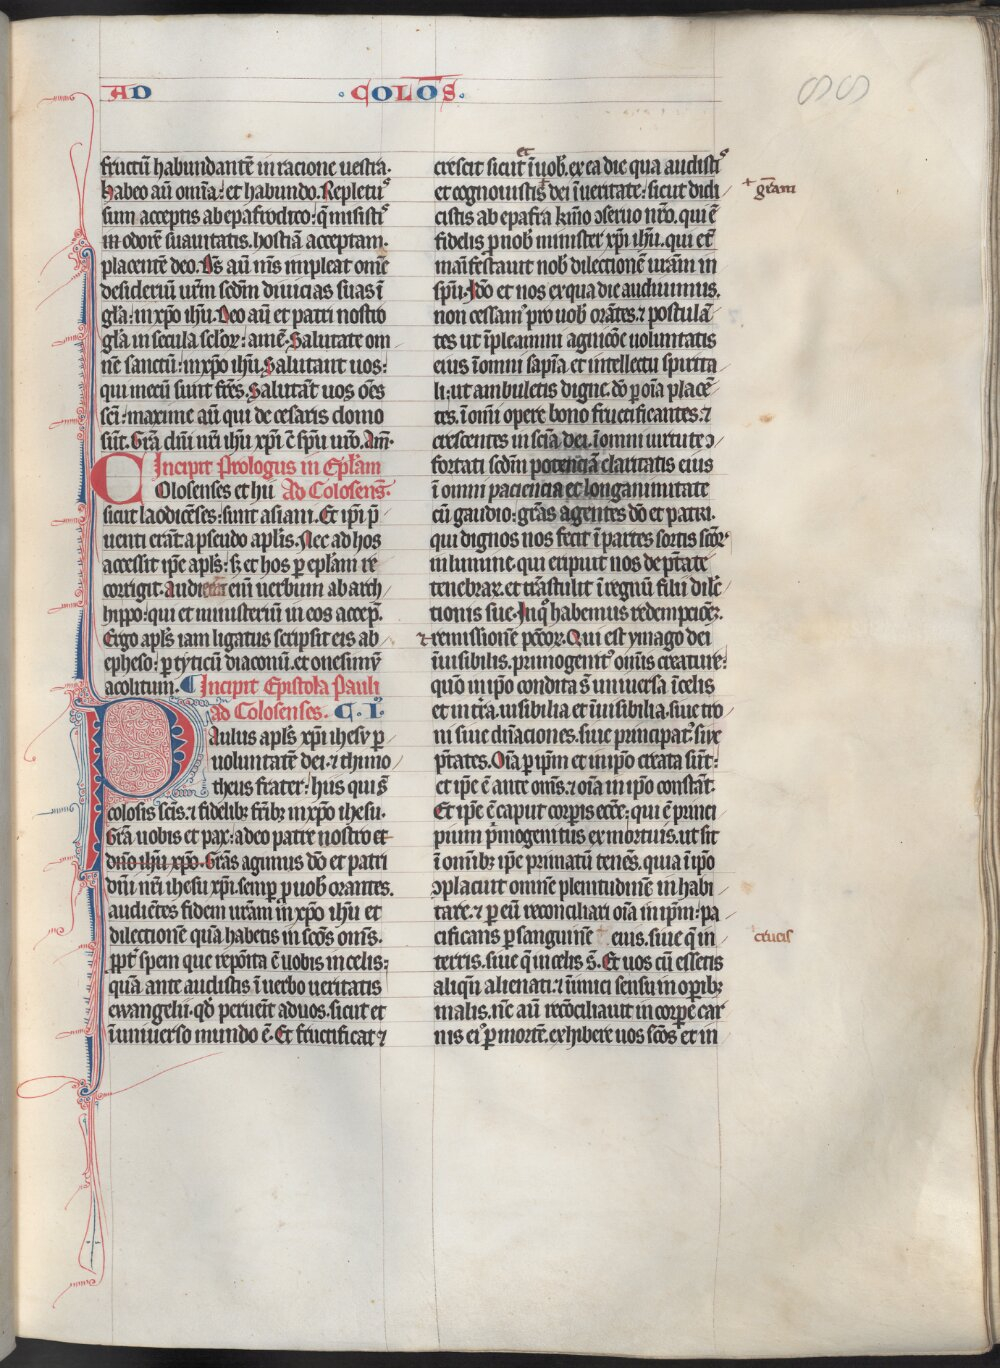 AD COLOS̄.
fructū habundantē in racione uestra.
habeo aū om̄ia: et habundo. Repletꝰ
sum acceptis ab epafrodito: q̄ misistꝭ
in odorē suauitatis. hostiā acceptam.
placentē deo. Ds̄ aū ms̄ impleat om̄e
desideriū ur̄m scdm̄ diuicias suas ī
gl̄a: in xp̄o ih̄u. Deo aū et patri nostro
gl̄a in secula sclo᷒ꝝ: amē. Salutate om
nē sanctū: in xp̄o ih̄u. Salutant uos:
qui mecū sunt fr̄es. Salutāt uos ōēs
sc̄i: maxime aū qui de cesaris domo
sūt. Gr̄a dn̄i nr̄i ih̄u xp̄i ē sp̄u ur̄o. Am̄.
Incipit Prologus in Ep̄lam
Colosenses et hii Ad Colosens̄.
sicut laodicēses: sunt asiani. Et ip̄i p̄
uenti erāt a pseudo apl̄is. Nec ad hos
accessit ip̄e apl̄s: sꝫ et hos ꝑ ep̄lam re
corrigit. audierāt eīū uerbum ab arch
hippo: qui et ministeriū in eos accep̄.
Ergo apl̄s iam ligatus scripsit eis ab
epheso: ꝑ tyticū diaconū. et onesimū
acolitum. Incipit Epistola Pauli
ad Colosenses. C. I.
Paulus apl̄s xp̄i ihesv ꝑ
uoluntatē dei. ⁊ thimo
theus frater: hiis qui s̄
colosis sc̄is. ⁊ fidelibꝫ fr̄ibꝫ in xp̄o ihesu.
Gr̄a uobis et pax: a deo patre nostro et
dn̄o ih̄u xp̄o. Gr̄as agimus dō et patri
dn̄i nr̄i ihesu xp̄i. semꝑ ꝓ uob̄ orantes.
audiētes fidem ur̄am in xp̄o ih̄u et
dilectionē quā habetis in sc̄os om̄s.
ꝓpt᷒ spem que repōita ē uobis in celis:
quā ante audistis ī uerbo ueritatis
ewangelii. qđ peruēit ad uos. sicut et
ī uniuerso mundo ē. Et fructificat ⁊
et
crescit sicut ī uob̄. ex ea die qua audistꝭ
et cognouistis + dei ī ueritate: sicut didi
+ gr̄am
cistis ab epafra kīmo ↄseruo nr̄o. qui ē
fidelis ꝓ nob̄ minister xp̄i ih̄u. qui et̄
maīfestauit nob̄ dilectionē ur̄am in
sp̄u. Iđo et nos ex qua die audiuimus.
non cessamꝰ pro uob̄ orātes. ⁊ postulā
tes ut īpleamini agnicōe uoluntatis
eius ī omni sapīa et intellectu spirita
li: ut ambuletis digne. dō ꝑ oīa placē
tes. ī om̄i opere bono fructificantes. ⁊
crescentes in scīa dei. ī omni uirtute ↄ
fortati scdm̄ potenciā claritatis eius
ī omni paciencia et longanimitate
cū gaudio: gr̄as agentes dō et patri.
qui dignos nos fecit ī partes sortis sc̄oꝝ
in lumine. qui eripuit nos de ptāte
tenebraꝝ. et trāstulit ī regnū filii dilc̄
tionis sue. In qͦ habemus redempcōeꝫ.
⁊ remissionē pc̄coꝝ. Qui est ymago dei
īuisibilis. primogenitꝰ om̄is creature:
quō in ip̄o condita s̄ uniuersa ī celis
et in t̄ra. uisibilia et īuisibilia. siue tro
ni siue dn̄aciones. siue principatꝰ siue
ptātes. Oīa ꝑ ip̄m et in ip̄o creata sūt:
et ip̄e ē ante om̄s. ⁊ oīa in ip̄o constāt.
Et ip̄e ē caput corꝑis ecc̄e: qui ē princi
pium p̄mogenitus ex mortuis. ut sit
ī omībꝫ ip̄e primatū tenēs. quia ī ip̄o
ↄplacuit omnē plenitudinē in habi
tare. ⁊ ꝑ eū reconciliari oīa in ip̄m: pa
cificans ꝑ sanguinē eius. siue q̄ in
crucis
terris. siue q̄ in celis s̄. Et uos cū essetis
aliqn̄ alienati. ⁊ īimici sensu in oꝑibꝫ
malis. nc̄ aū recōciliauit in corꝑe car
nis eiꝰ ꝑ mortē. exhibere uos sc̄os et in